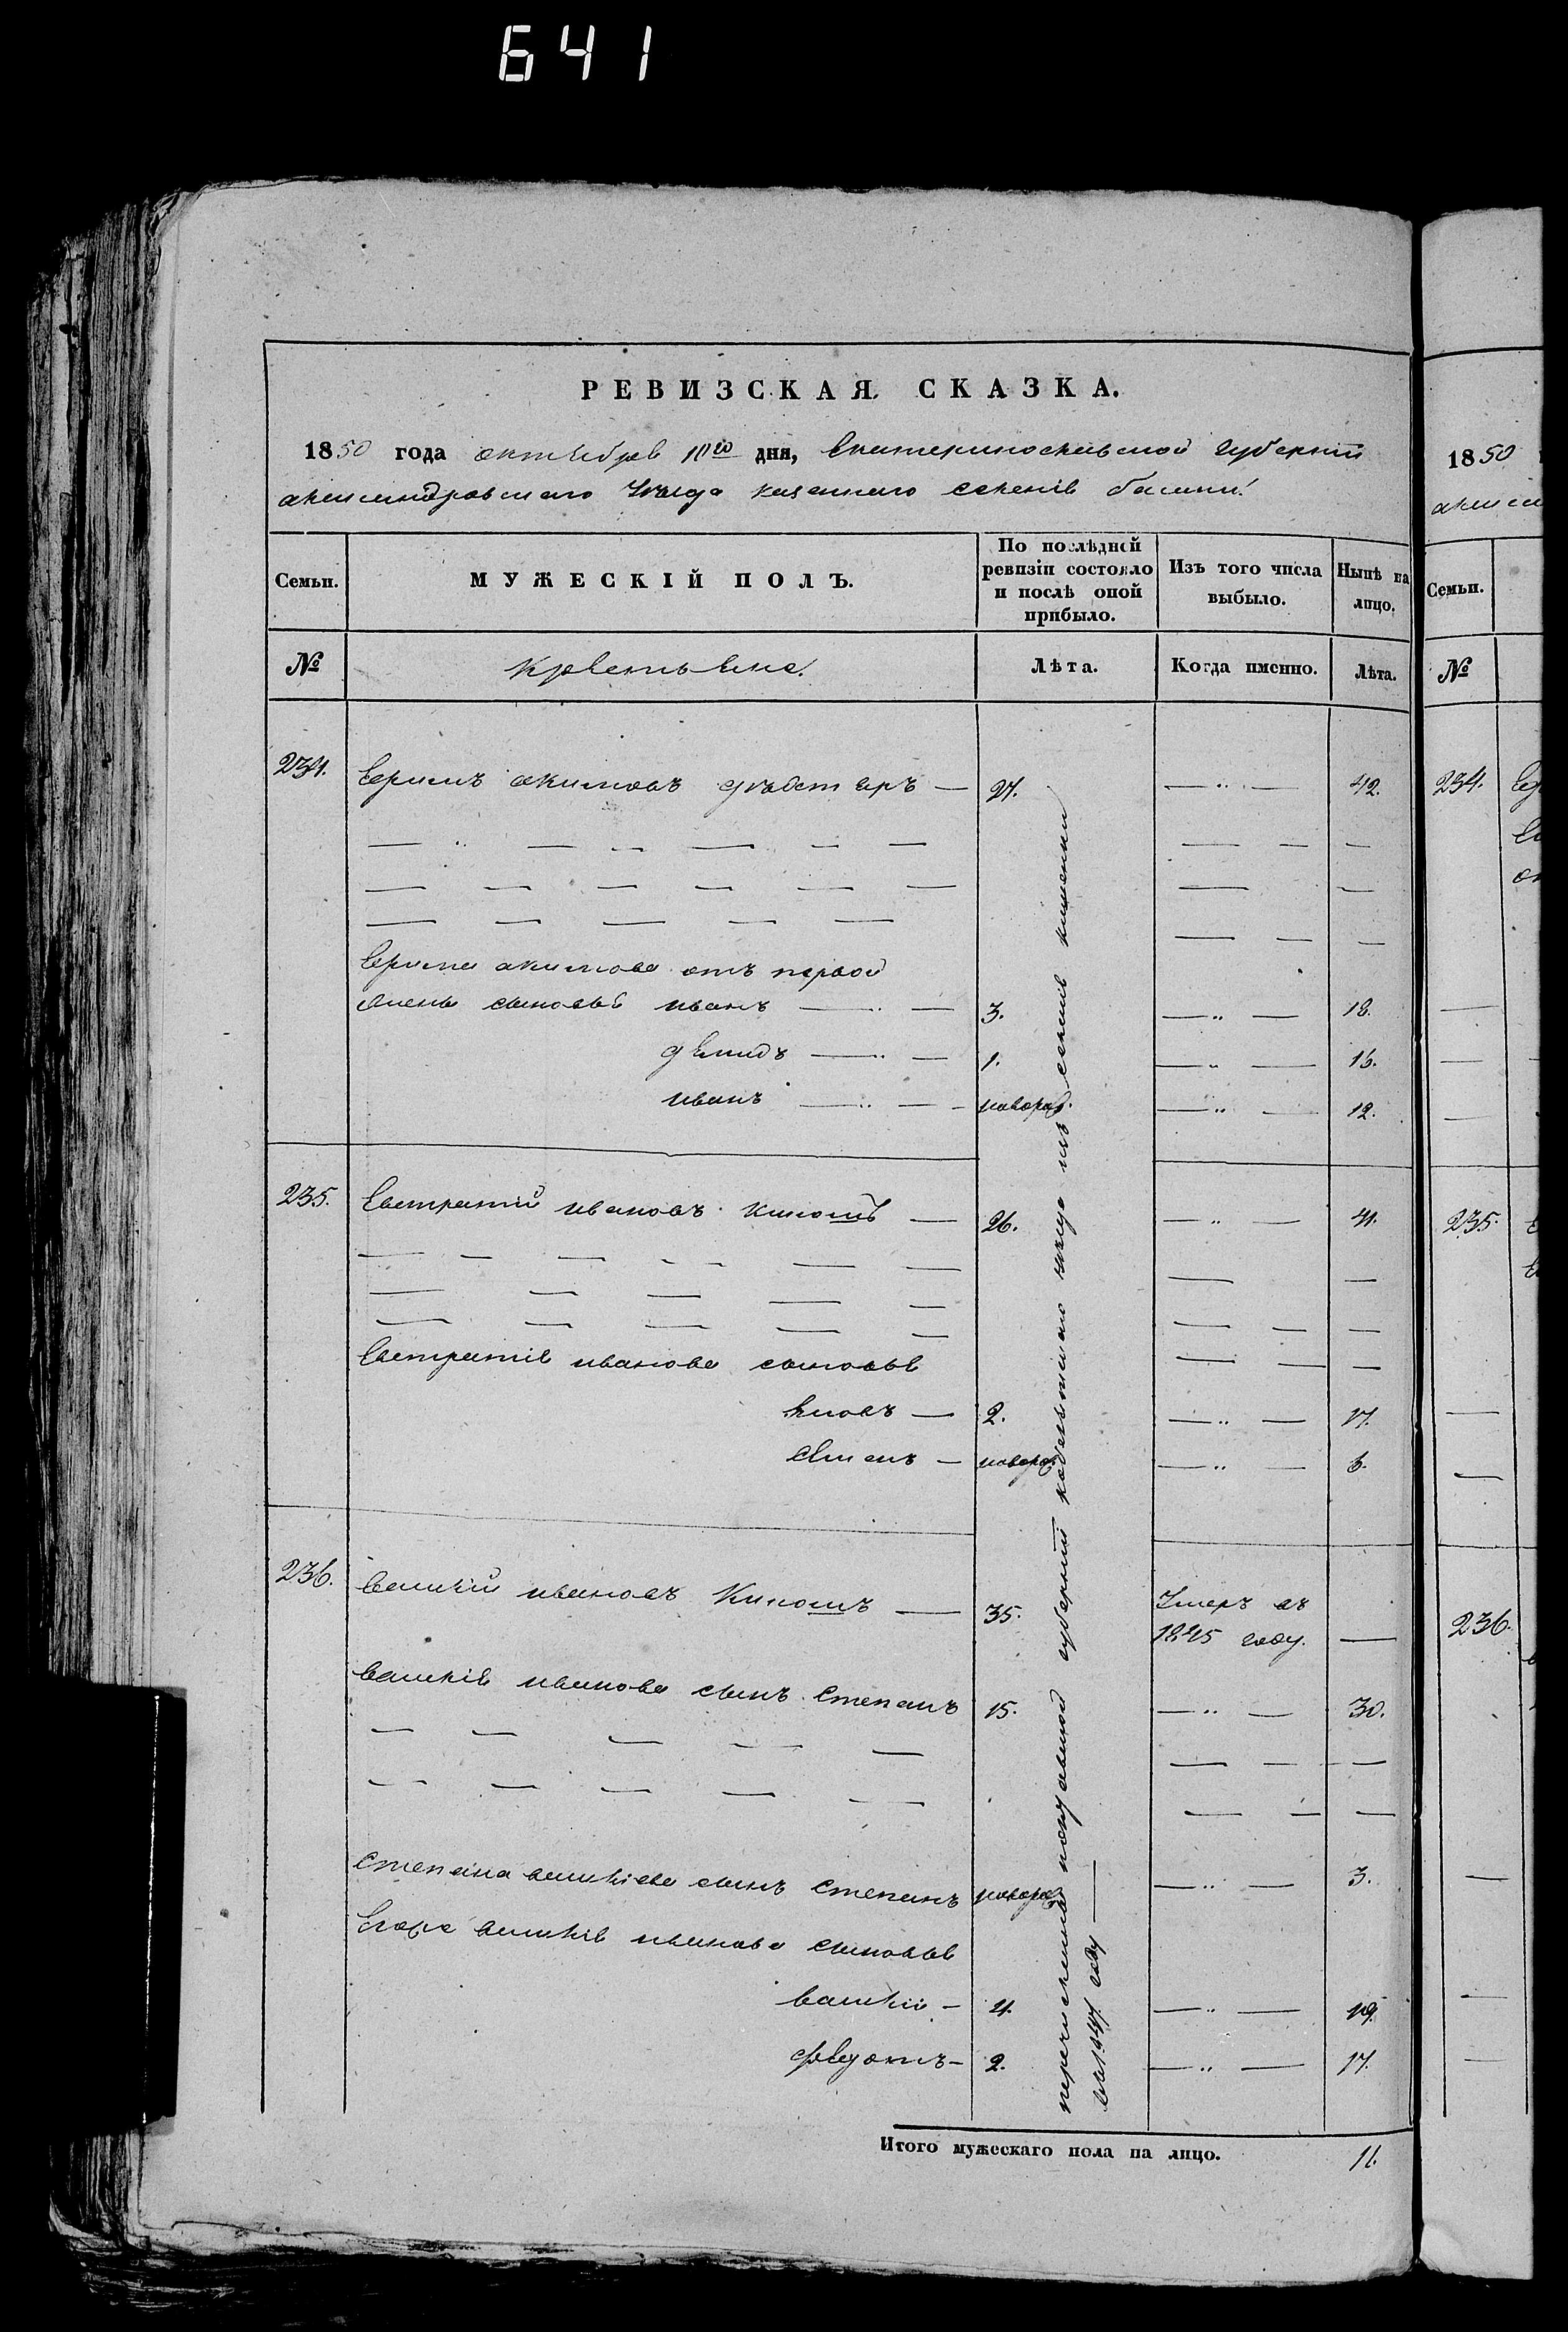 641
РЕВИЗСКАЯ СКАЗКА.
1850 года октября 10го дня, Екатеринославской губернии
александровского уезда казенного селения
Семьи.
МУЖЕСКІЙ ПОЛЪ.
По послѣдней ревизіи состояло и послѣ оной прибыло.
Изъ того числа выбыло.
Нынѣ на лицо.
№
крестьяне.
Лѣта.
Когда именно.
Лѣта.
234. Ефимъ акимовъ — 27. — " — 42.
Ефима акимова отъ первой
жены сыновья иванъ — " — 3. — " — 18.
демидъ — " — 1. — " — 16.
иванъ — " — новорож. — " — 12.
235. Евстратий ивановъ — 26. — " — 41.
Евстратия иванова сыновья
яковъ — 2. — " — 17.
семенъ — новорож. — " — 6.
236. василий ивановъ — 35. Умеръ въ
1845 году. —
василия иванова сынъ степанъ 15. — " — 30.
степана василиева сынъ степанъ новорож. — " — 3.
василия иванова сыновья
василий — 4. — " — 19.
федотъ — 2. — " — 17.
перечислены полтавской губернии кобелякского уезда изъ селения
въ 1847 году —
Итого мужескаго пола на лицо. 11.
1850
Семьи.
№
234.
235.
236.